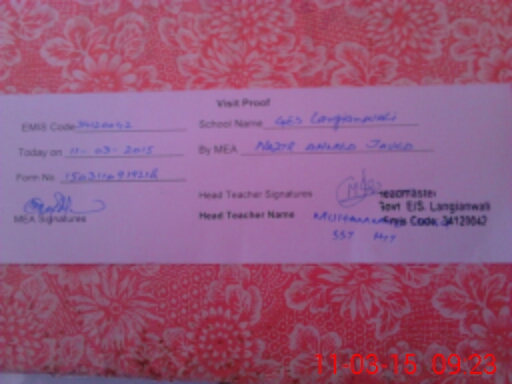 Visit Proof
EMIS Code 34120042 School Name GES Langianwali
Today on 11-03-2015 By MEA Nazir Ahmad Javed
Form No
Head Teacher Signatures
Headmaster
Govt E/S. Langianwali
Emis Code: 34120042
MEA Signatures
Head Teacher Name
SST
11-03-15 09:23